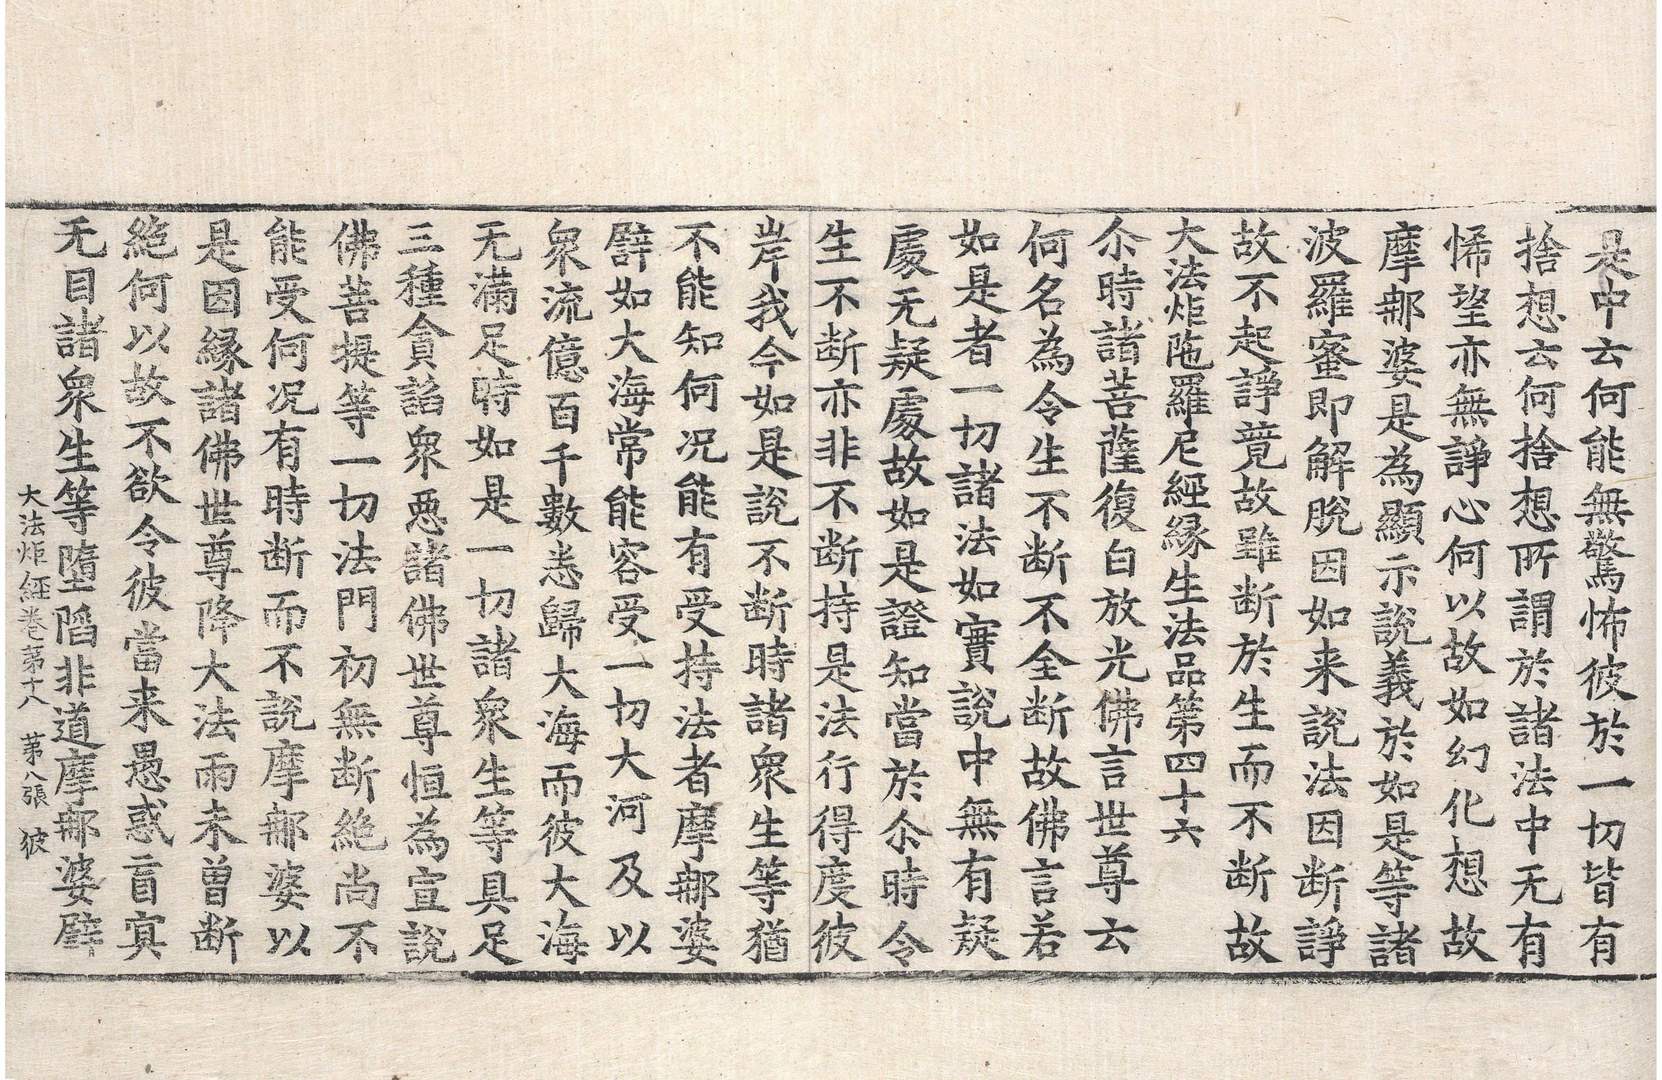 是中云何能無驚怖彼於一切皆有
捨想云何捨想所謂於諸法中无有
悕望亦無諍心何以故如幻化想故
摩那婆是為顯示說義於如是等諸
波羅蜜即解脫因如来說法因断諍
故不起諍竟故雖断於生而不断故
大法炬陁羅尼經緣生法品第四十六
尒時諸菩薩復白放光佛言世尊云
何名為令生不断不全断故佛言若
如是者一切諸法如實說中無有疑
處无疑處故如是證知當於尒時令
生不断亦非不断持是法行得度彼
岸我今如是說不断時諸眾生等猶
不能知何况能有受持法者摩那婆
譬如大海常能容受一切大河及以
眾流億百千數悉歸大海而彼大海
无滿足時如是一切諸眾生等具足
三種貪諂眾惡諸佛世尊恒為宣說
佛菩提等一切法門初無断絕尚不
能受何况有時断而不說摩那婆以
是因緣諸佛世尊降大法雨未曾断
絕何以故不欲令彼當来愚惑盲寘
无目諸眾生等墮陷非道摩那婆譬
大法炬經卷苐十八　苐八張　彼